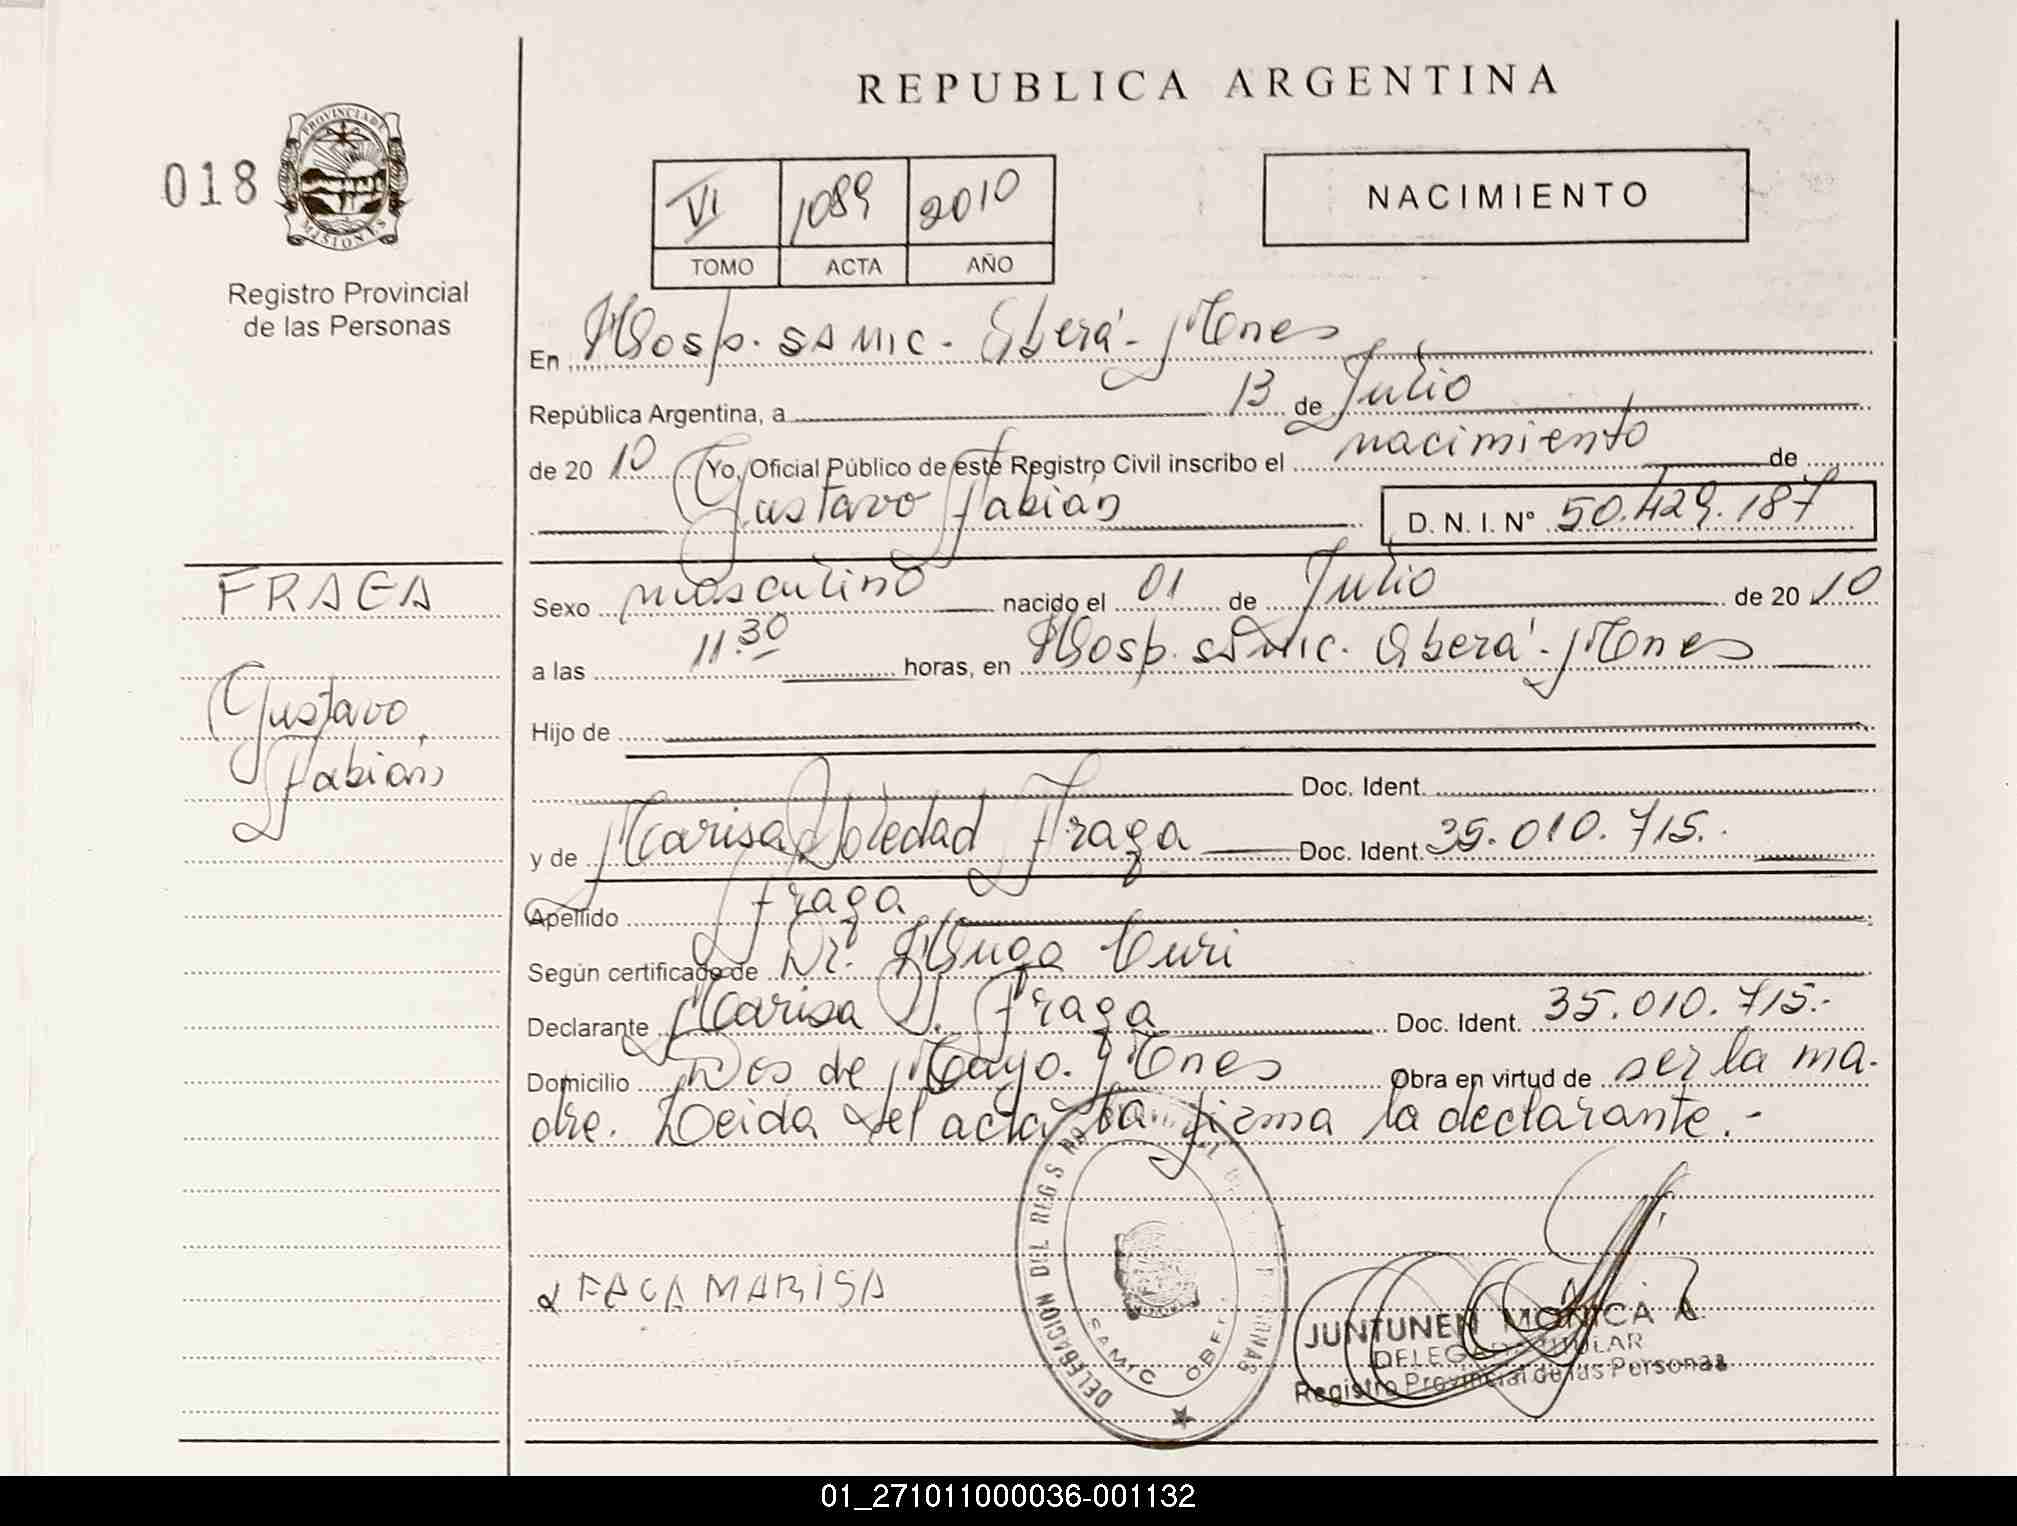 REPUBLICA ARGENTINA
018
PROVINCIA DE
MISIONES
Registro Provincial
de las Personas
VI 1089 2010
TOMO ACTA AÑO
NACIMIENTO
En Hosp. SAMIC. Oberá - Mnes
República Argentina, a 13 de Julio
de 20 10 Yo, Oficial Público de este Registro Civil inscribo el nacimiento de
Gustavo Fabián D. N. I. Nº 50.429.187
FRAGA
Gustavo
Fabián
Sexo masculino nacido el 01 de Julio de 20 10
a las 11.30 horas, en Hosp. SAMIC. Oberá - Mnes
Hijo de
Doc. Ident.
y de Marisa Soledad Fraga Doc. Ident. 35.010.715.
Apellido Fraga
Según certificado de Dr. Hugo
Declarante Marisa S. Fraga Doc. Ident. 35.010.715.-
Domicilio Dos de Mayo. Mnes Obra en virtud de ser la ma-
dre. Leida el acta la firma la declarante.-
MARISA
DELEGACION DEL REG
SAMIC OBE
JUNTUNEN MONICA A.
DELEGADA TITULAR
Registro Provincial de las Personas
01_271011000036-001132